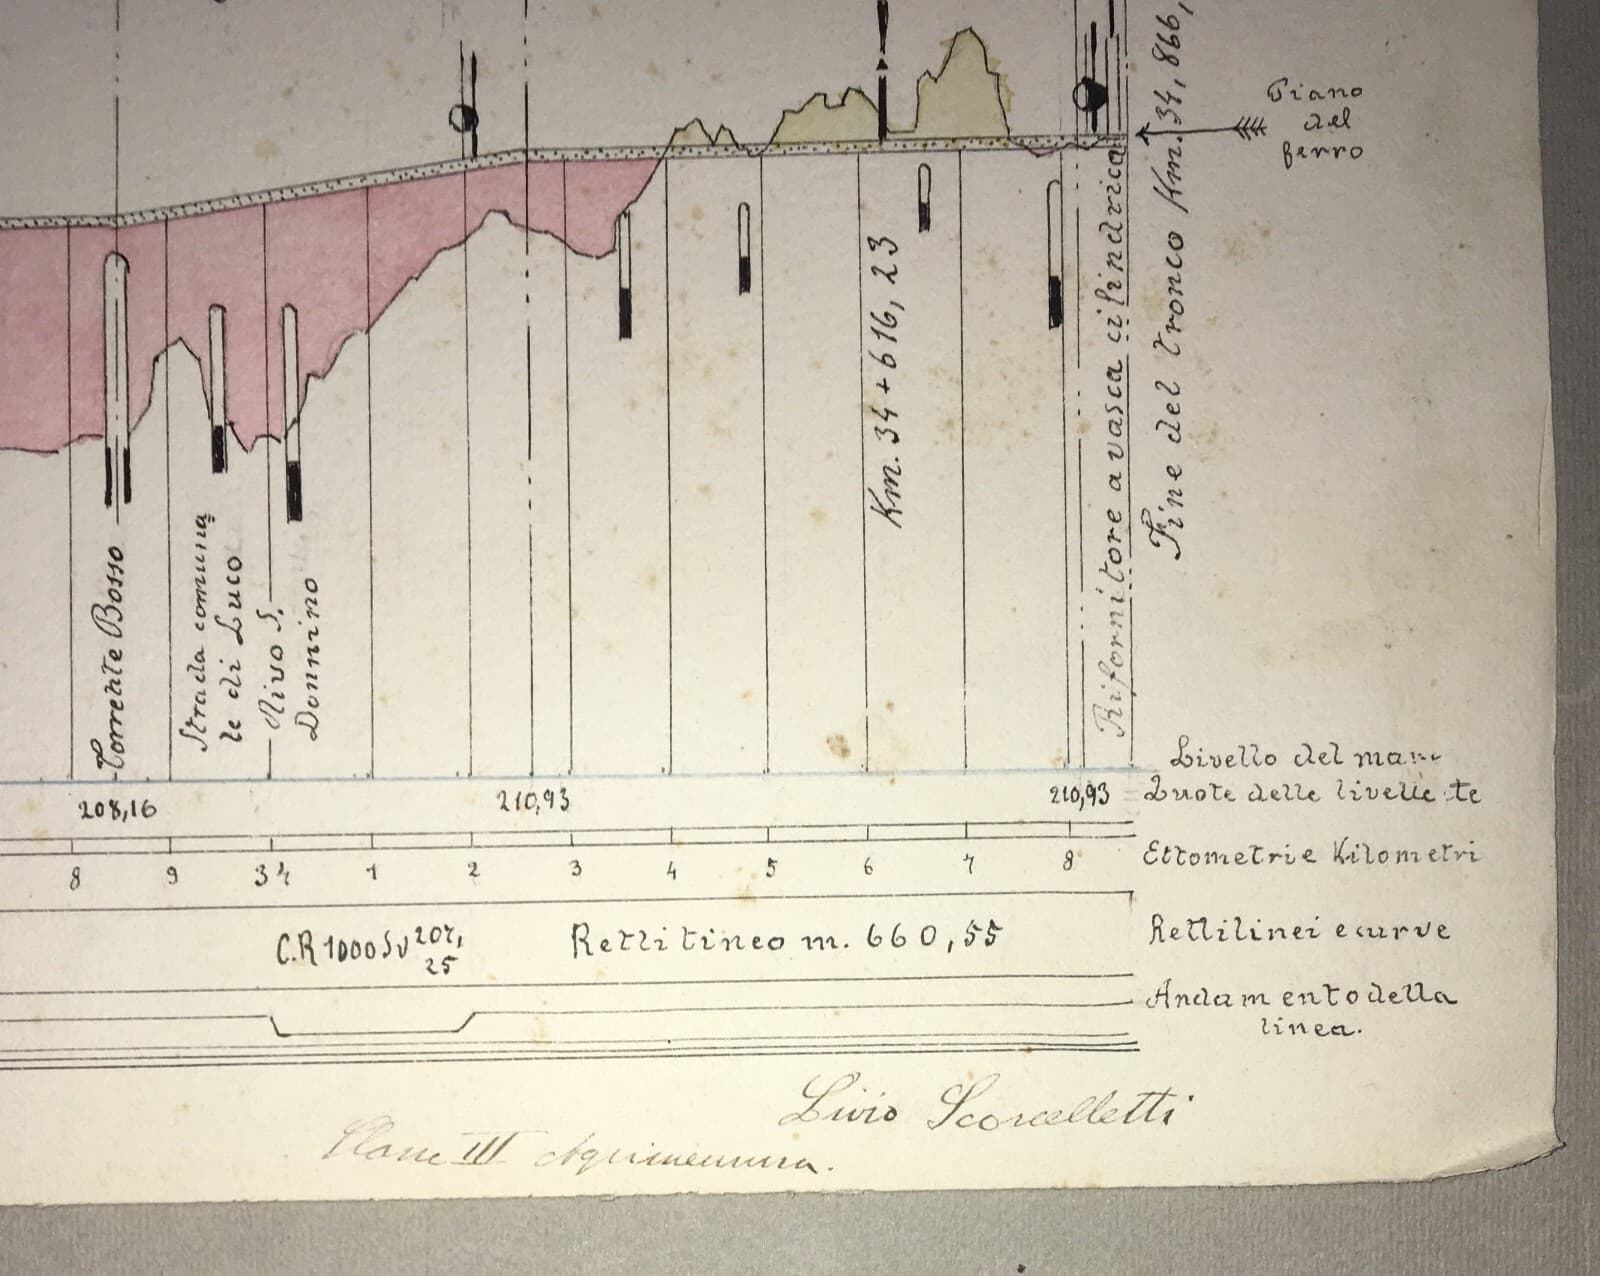 Piano
del
ferro
Fine del tronco Km. 34,866,
Rifornitore a vasca cilindrica
Km. 34+616,23
Torrente Bosso
Strada comuna
le di Luco
Rivo S.
Donnino
Livello del mare
208,16 210,93 210,93 Quote delle livellette
8 9 34 1 2 3 4 5 6 7 8 Ettometri e Kilometri
C.R 1000 Sv 207,25 Rettilineo m. 660,55 Rettilinei e curve
Andamento della
linea.
Livio Scorcelletti
Classe III Agrimensura.